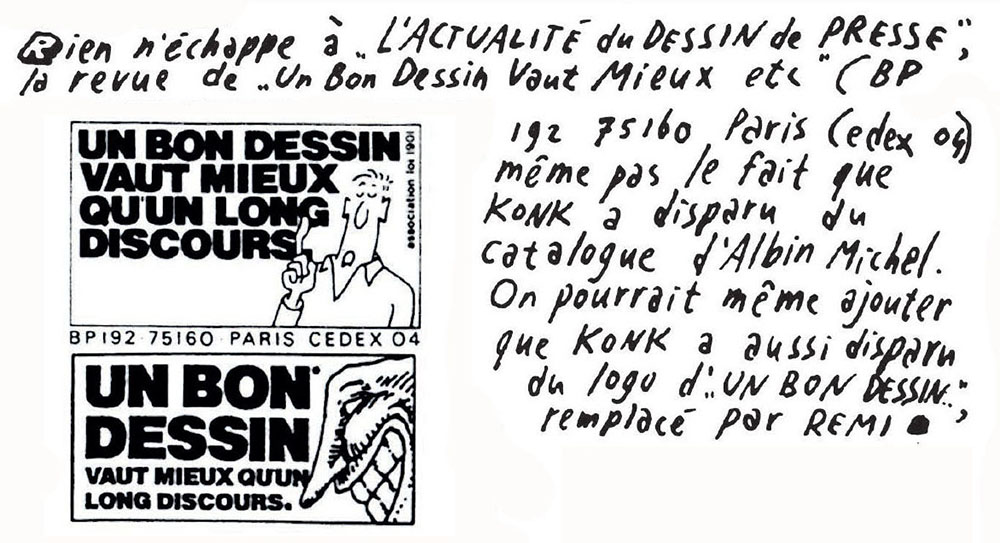 Rien n'échappe à „L'ACTUALITÉ du DESSIN de PRESSE",
la revue de „Un Bon Dessin Vaut Mieux etc" (BP
192 75160 Paris Cedex 04)
même pas le fait que
KONK a disparu du
catalogue d'Albin Michel.
On pourrait même ajouter
que KONK a aussi disparu
du logo d'„UN BON DESSIN..",
remplacé par REMI
UN BON DESSIN
VAUT MIEUX
QU'UN LONG
DISCOURS.
association loi 1901
BP192·75160·PARIS CEDEX 04
UN BON
DESSIN
VAUT MIEUX QU'UN
LONG DISCOURS.